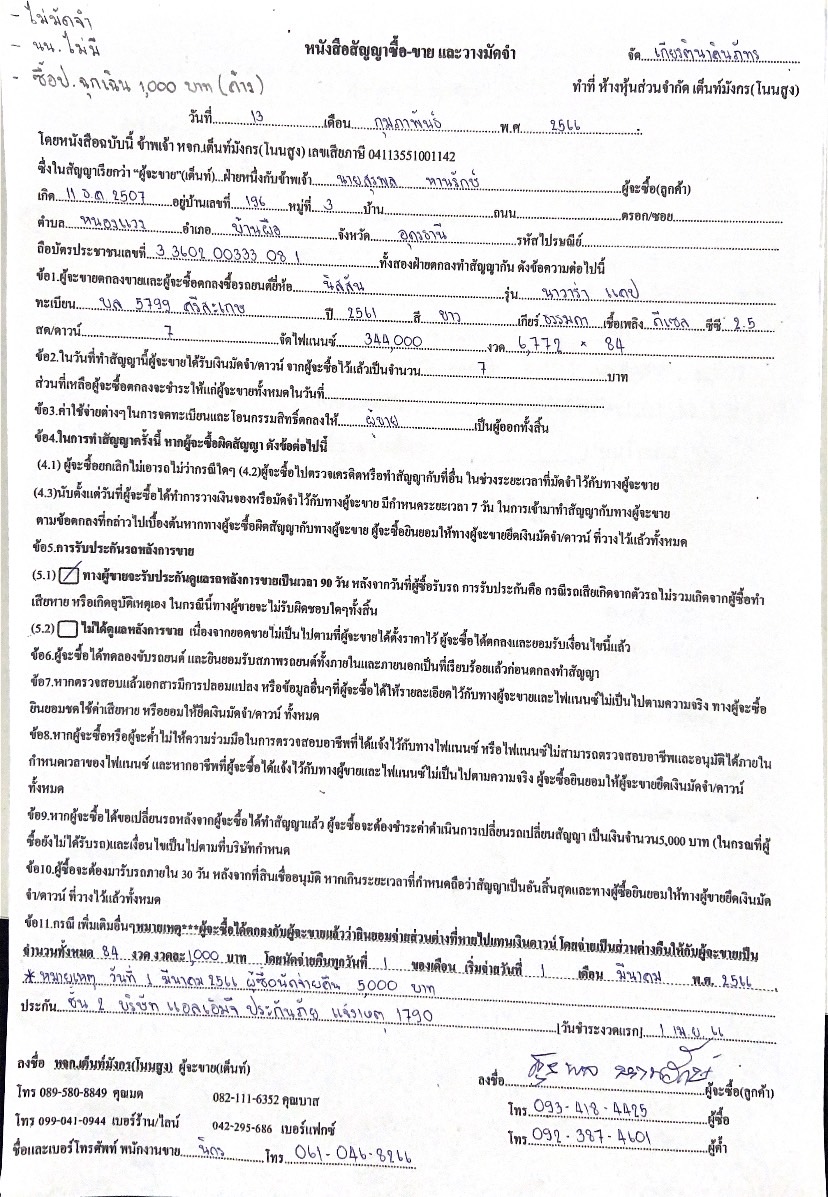 - ไม่มัดจำ
- นน. ไม่มี
- ซื้อป. ฉุกเฉิน 1,000 บาท (ค้าง)
หนังสือสัญญาซื้อ-ขาย และวางมัดจำ
จัด เกียรตินาคินภัทร
ทำที่ ห้างหุ้นส่วนจำกัด เต็นท์มังกร(โนนสูง)
วันที่ 13 เดือน กุมภาพันธ์ พ.ศ 2566
โดยหนังสือฉบับนี้ ข้าพเจ้า หจก.เต็นท์มังกร(โนนสูง) เลขเสียภาษี 04113551001142
ซึ่งในสัญญาเรียกว่า "ผู้จะขาย"(เต็นท์)...ฝ่ายหนึ่งกับข้าพเจ้า นายสุรพล หานรักษ์ ผู้จะซื้อ(ลูกค้า)
เกิด 11 ธ.ค 2507 อยู่บ้านเลขที่ 196 หมู่ที่ 3 บ้าน ถนน ตรอก/ซอย
ตำบล หนองแวง อำเภอ บ้านผือ จังหวัด อุดรธานี รหัสไปรษณีย์
ถือบัตรประชาชนเลขที่ 3 3602 00333 08 1 ทั้งสองฝ่ายตกลงทำสัญญากัน ดังข้อความต่อไปนี้
ข้อ1.ผู้จะขายตกลงขายและผู้จะซื้อตกลงซื้อรถยนต์ยี่ห้อ นิสสัน รุ่น นาวาร่า แคป
ทะเบียน บล 5799 ศรีสะเกษ ปี 2561 สี ขาว เกียร์ ธรรมดา เชื้อเพลิง ดีเซล ซีซี 2.5
สด/ดาวน์ 7 จัดไฟแนนซ์ 344,000 งวด 6,772 × 84
ข้อ2.ในวันที่ทำสัญญานี้ผู้จะขายได้รับเงินมัดจำ/ดาวน์ จากผู้จะซื้อไว้แล้วเป็นจำนวน 7 บาท
ส่วนที่เหลือผู้จะซื้อตกลงจะชำระให้แก่ผู้จะขายทั้งหมดในวันที่
ข้อ3.ค่าใช้จ่ายต่างๆในการจดทะเบียนและโอนกรรมสิทธิ์ตกลงให้ ผู้ขาย เป็นผู้ออกทั้งสิ้น
ข้อ4.ในการทำสัญญาครั้งนี้ หากผู้จะซื้อผิดสัญญา ดังข้อต่อไปนี้
(4.1) ผู้จะซื้อยกเลิกไม่เอารถไม่ว่ากรณีใดๆ (4.2)ผู้จะซื้อไปตรวจเครดิตหรือทำสัญญากับที่อื่น ในช่วงระยะเวลาที่มัดจำไว้กับทางผู้จะขาย
(4.3)นับตั้งแต่วันที่ผู้จะซื้อได้ทำการวางเงินจองหรือมัดจำไว้กับทางผู้จะขาย มีกำหนดระยะเวลา 7 วัน ในการเข้ามาทำสัญญากับทางผู้จะขาย
ตามข้อตกลงที่กล่าวไปเบื้องต้นหากทางผู้จะซื้อผิดสัญญากับทางผู้จะขาย ผู้จะซื้อยินยอมให้ทางผู้จะขายยึดเงินมัดจำ/ดาวน์ ที่วางไว้แล้วทั้งหมด
ข้อ5.การรับประกันรถหลังการขาย
(5.1) ทางผู้ขายจะรับประกันดูแลรถหลังการขายเป็นเวลา 90 วัน หลังจากวันที่ผู้ซื้อรับรถ การรับประกันคือ กรณีรถเสียเกิดจากตัวรถไม่รวมเกิดจากผู้ซื้อทำ
เสียหาย หรือเกิดอุบัติเหตุเอง ในกรณีนี้ทางผู้ขายจะไม่รับผิดชอบใดๆทั้งสิ้น
(5.2) ไม่ได้ดูแลหลังการขาย เนื่องจากยอดขายไม่เป็นไปตามที่ผู้จะขายได้ตั้งราคาไว้ ผู้จะซื้อได้ตกลงและยอมรับเงื่อนไขนี้แล้ว
ข้อ6.ผู้จะซื้อได้ทดลองขับรถยนต์ และยินยอมรับสภาพรถยนต์ทั้งภายในและภายนอกเป็นที่เรียบร้อยแล้วก่อนตกลงทำสัญญา
ข้อ7.หากตรวจสอบแล้วเอกสารมีการปลอมแปลง หรือข้อมูลอื่นๆที่ผู้จะซื้อได้ให้รายละเอียดไว้กับทางผู้จะขายและไฟแนนซ์ไม่เป็นไปตามความจริง ทางผู้จะซื้อ
ยินยอมชดใช้ค่าเสียหาย หรือยอมให้ยึดเงินมัดจำ/ดาวน์ ทั้งหมด
ข้อ8.หากผู้จะซื้อหรือผู้จะค้ำไม่ให้ความร่วมมือในการตรวจสอบอาชีพที่ได้แจ้งไว้กับทางไฟแนนซ์ หรือไฟแนนซ์ไม่สามารถตรวจสอบอาชีพและอนุมัติได้ภายใน
กำหนดเวลาของไฟแนนซ์ และหากอาชีพที่ผู้จะซื้อได้แจ้งไว้กับทางผู้ขายและไฟแนนซ์ไม่เป็นไปตามความจริง ผู้จะซื้อยินยอมให้ผู้จะขายยึดเงินมัดจำ/ดาวน์
ทั้งหมด
ข้อ9.หากผู้จะซื้อได้ขอเปลี่ยนรถหลังจากผู้จะซื้อได้ทำสัญญาแล้ว ผู้จะซื้อจะต้องชำระค่าดำเนินการเปลี่ยนรถเปลี่ยนสัญญา เป็นเงินจำนวน5,000 บาท (ในกรณที่ผู้
ซื้อยังไม่ได้รับรถ)และเงื่อนไขเป็นไปตามที่บริษัทกำหนด
ข้อ10.ผู้ซื้อจะต้องมารับรถภายใน 30 วัน หลังจากที่สินเชื่ออนุมัติ หากเกินระยะเวลาที่กำหนดถือว่าสัญญาเป็นอันสิ้นสุดและทางผู้ซื้อยินยอมให้ทางผู้ขายยึดเงินมัด
จำ/ดาวน์ ที่วางไว้แล้วทั้งหมด
ข้อ11.กรณี เพิ่มเติมอื่นๆหมายเหตุ***ผู้จะซื้อได้ตกลงกับผู้จะขายแล้วว่ายินยอมจ่ายส่วนต่างที่หายไปแทนเงินดาวน์ โดยจ่ายเป็นส่วนต่างคืนให้กับผู้จะขายเป็น
จำนวนทั้งหมด 84 งวด งวดละ 1,000 บาท โดยนัดจ่ายคืนทุกวันที่ 1 ของเดือน เริ่มจ่ายวันที่ 1 เดือน มีนาคม พ.ศ. 2566
* หมายเหตุ วันที่ 1 มีนาคม 2566 ผู้ซื้อนัดจ่ายคืน 5,000 บาท
ประกัน ชั้น 2 บริษัท แอลเอ็มจี ประกันภัย แจ้งเหตุ 1790 [วันชำระงวดแรก] 1 เม.ย. 66
ลงชื่อ หจก.เต็นท์มังกร(โนนสูง) ผู้จะขาย(เต็นท์)
ลงชื่อ ผู้จะซื้อ(ลูกค้า)
โทร 089-580-8849 คุณมด 082-111-6352 คุณบาส
โทร 093-418-4425 ผู้ซื้อ
โทร 099-041-0944 เบอร์ร้าน/ไลน์ 042-295-686 เบอร์แฟกซ์
โทร 092-387-4601 ผู้ค้ำ
ชื่อและเบอร์โทรศัพท์ พนักงานขาย นิกร โทร 061-046-8266